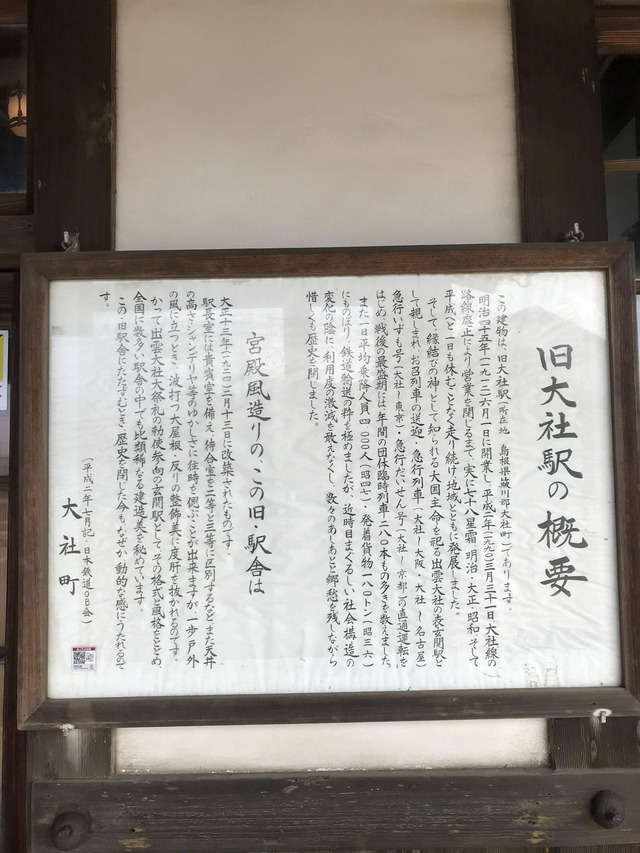 旧大社駅の概要
この建物は、旧大社駅(所在地 島根県簸川郡大社町)であります。
明治四十五年(一九一二)六月一日に開業し、平成二年(一九九〇)三月三十一日、大社線の
路線廃止により営業を閉じるまで、実に七十八星霜、明治・大正・昭和そして
平成へと一日も休むことなく走り続け地域とともに発展しました。
そして、縁結びの神として知られる大国主命を祀る出雲大社の表玄関駅と
して親しまれ、お召列車の送迎・急行列車(大社〜大阪・大社〜名古屋)
急行いずも号(大社〜東京)・急行だいせん号(大社〜京都)の直通運転を
はじめ、戦後の最盛期には、年間の団体臨時列車二八〇本もの多きを数えました。
また一日平均乗降人員四、〇〇〇人(昭四七)・発着貨物一八〇トン(昭三六)
にものぼり、鉄道輸送の粋を極めましたが、近時目まぐるしい社会構造の
変化の陰に、利用度の激減を数えなくし、数々のあしあとと郷愁を残しながら
惜しくも歴史を閉じました。
宮殿風造りの、この旧・駅舎は
大正十三年(一九二四)二月十三日に改装されたものです。
駅長室には貴賓室を備え、待合室を二等と三等に区別するなど、また天井
の高さ・シャンデリヤ等のゆかしさに往時を偲ぶことが出来ますが、一歩戸外
の風に立つとき、波打つ大屋根・反りの整飾美に度肝を抜かれるのです。
かつて出雲大社大祭礼の勅使参向の玄関駅として、その格式と風格をとどめ、
全国に数多い駅舎の中でも比類稀なる建造美を秘めています。
この旧駅舎にたたずむとき、歴史を閉じた今も、なぜか動的な感にうたれるので
す。
(平成二年七月記・日本鉄道OB会)
大社町